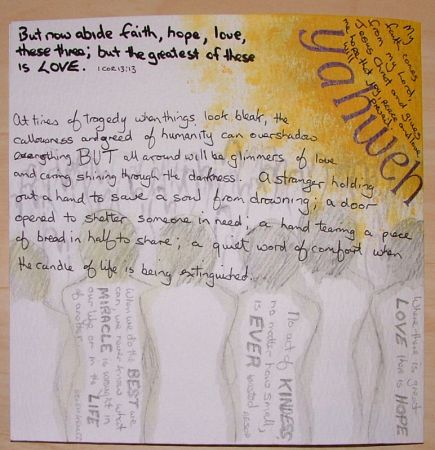 But now abide faith, hope, love,
these three; but the greatest of these
is LOVE. 1 COR 13:13
My faith comes
from my Lord,
Jesus Christ and gives
me hope that joy, peace and love
will prevail
yahweh
At times of tragedy when things look bleak, the
callousness and greed of humanity can overshadow
everything BUT all around will be glimmers of love
and caring shining through the darkness. A stranger holding
out a hand to save a soul from drowning; a door
opened to shelter someone in need; a hand tearing a piece
of bread in half to share; a quiet word of comfort when
the candle of life is being extinguished.
When we do the BEST we
can, we never know what
MIRACLE is wrought in
our life or in the LIFE
of another
HELEN KELLER
No act of KINDNESS,
no matter how small,
is EVER wasted AESOP
Where there is great
LOVE there is HOPE